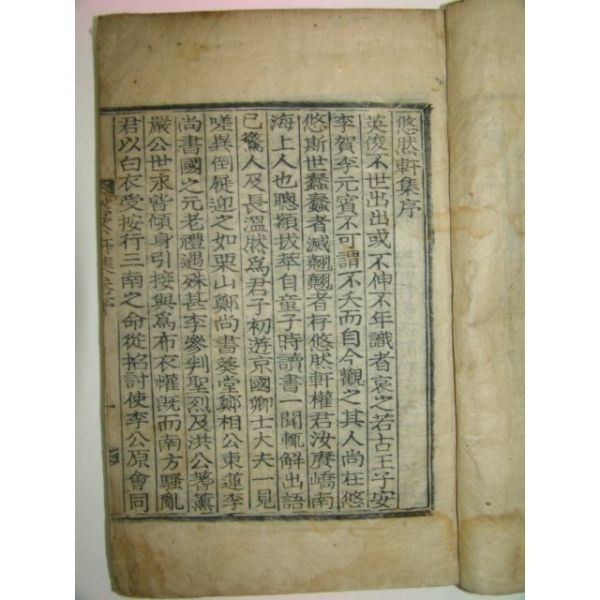 悠然軒集序
英俊不世出出或不伸不年識者哀之若古王子安
李賀李元賓不可謂不夭而自今觀之其人尚在悠
悠斯世蠢蠢者滅翹翹者存悠然軒權君汝賡嶠南
海上人也聰穎拔萃自童子時讀書一聞輒解出語
已驚人及長溫然爲君子初游京國卿士大夫一見
嗟異倒屣迎之如栗山鄭尚書葵堂鄭相公東蓮李
尚書國之元老禮遇殊甚李參判聖烈及洪公蓍薰
嚴公世永皆傾身引接與爲布衣懽旣而南方騷亂
君以白衣受按行三南之命從招討使李公原會同
悠然軒集序
一